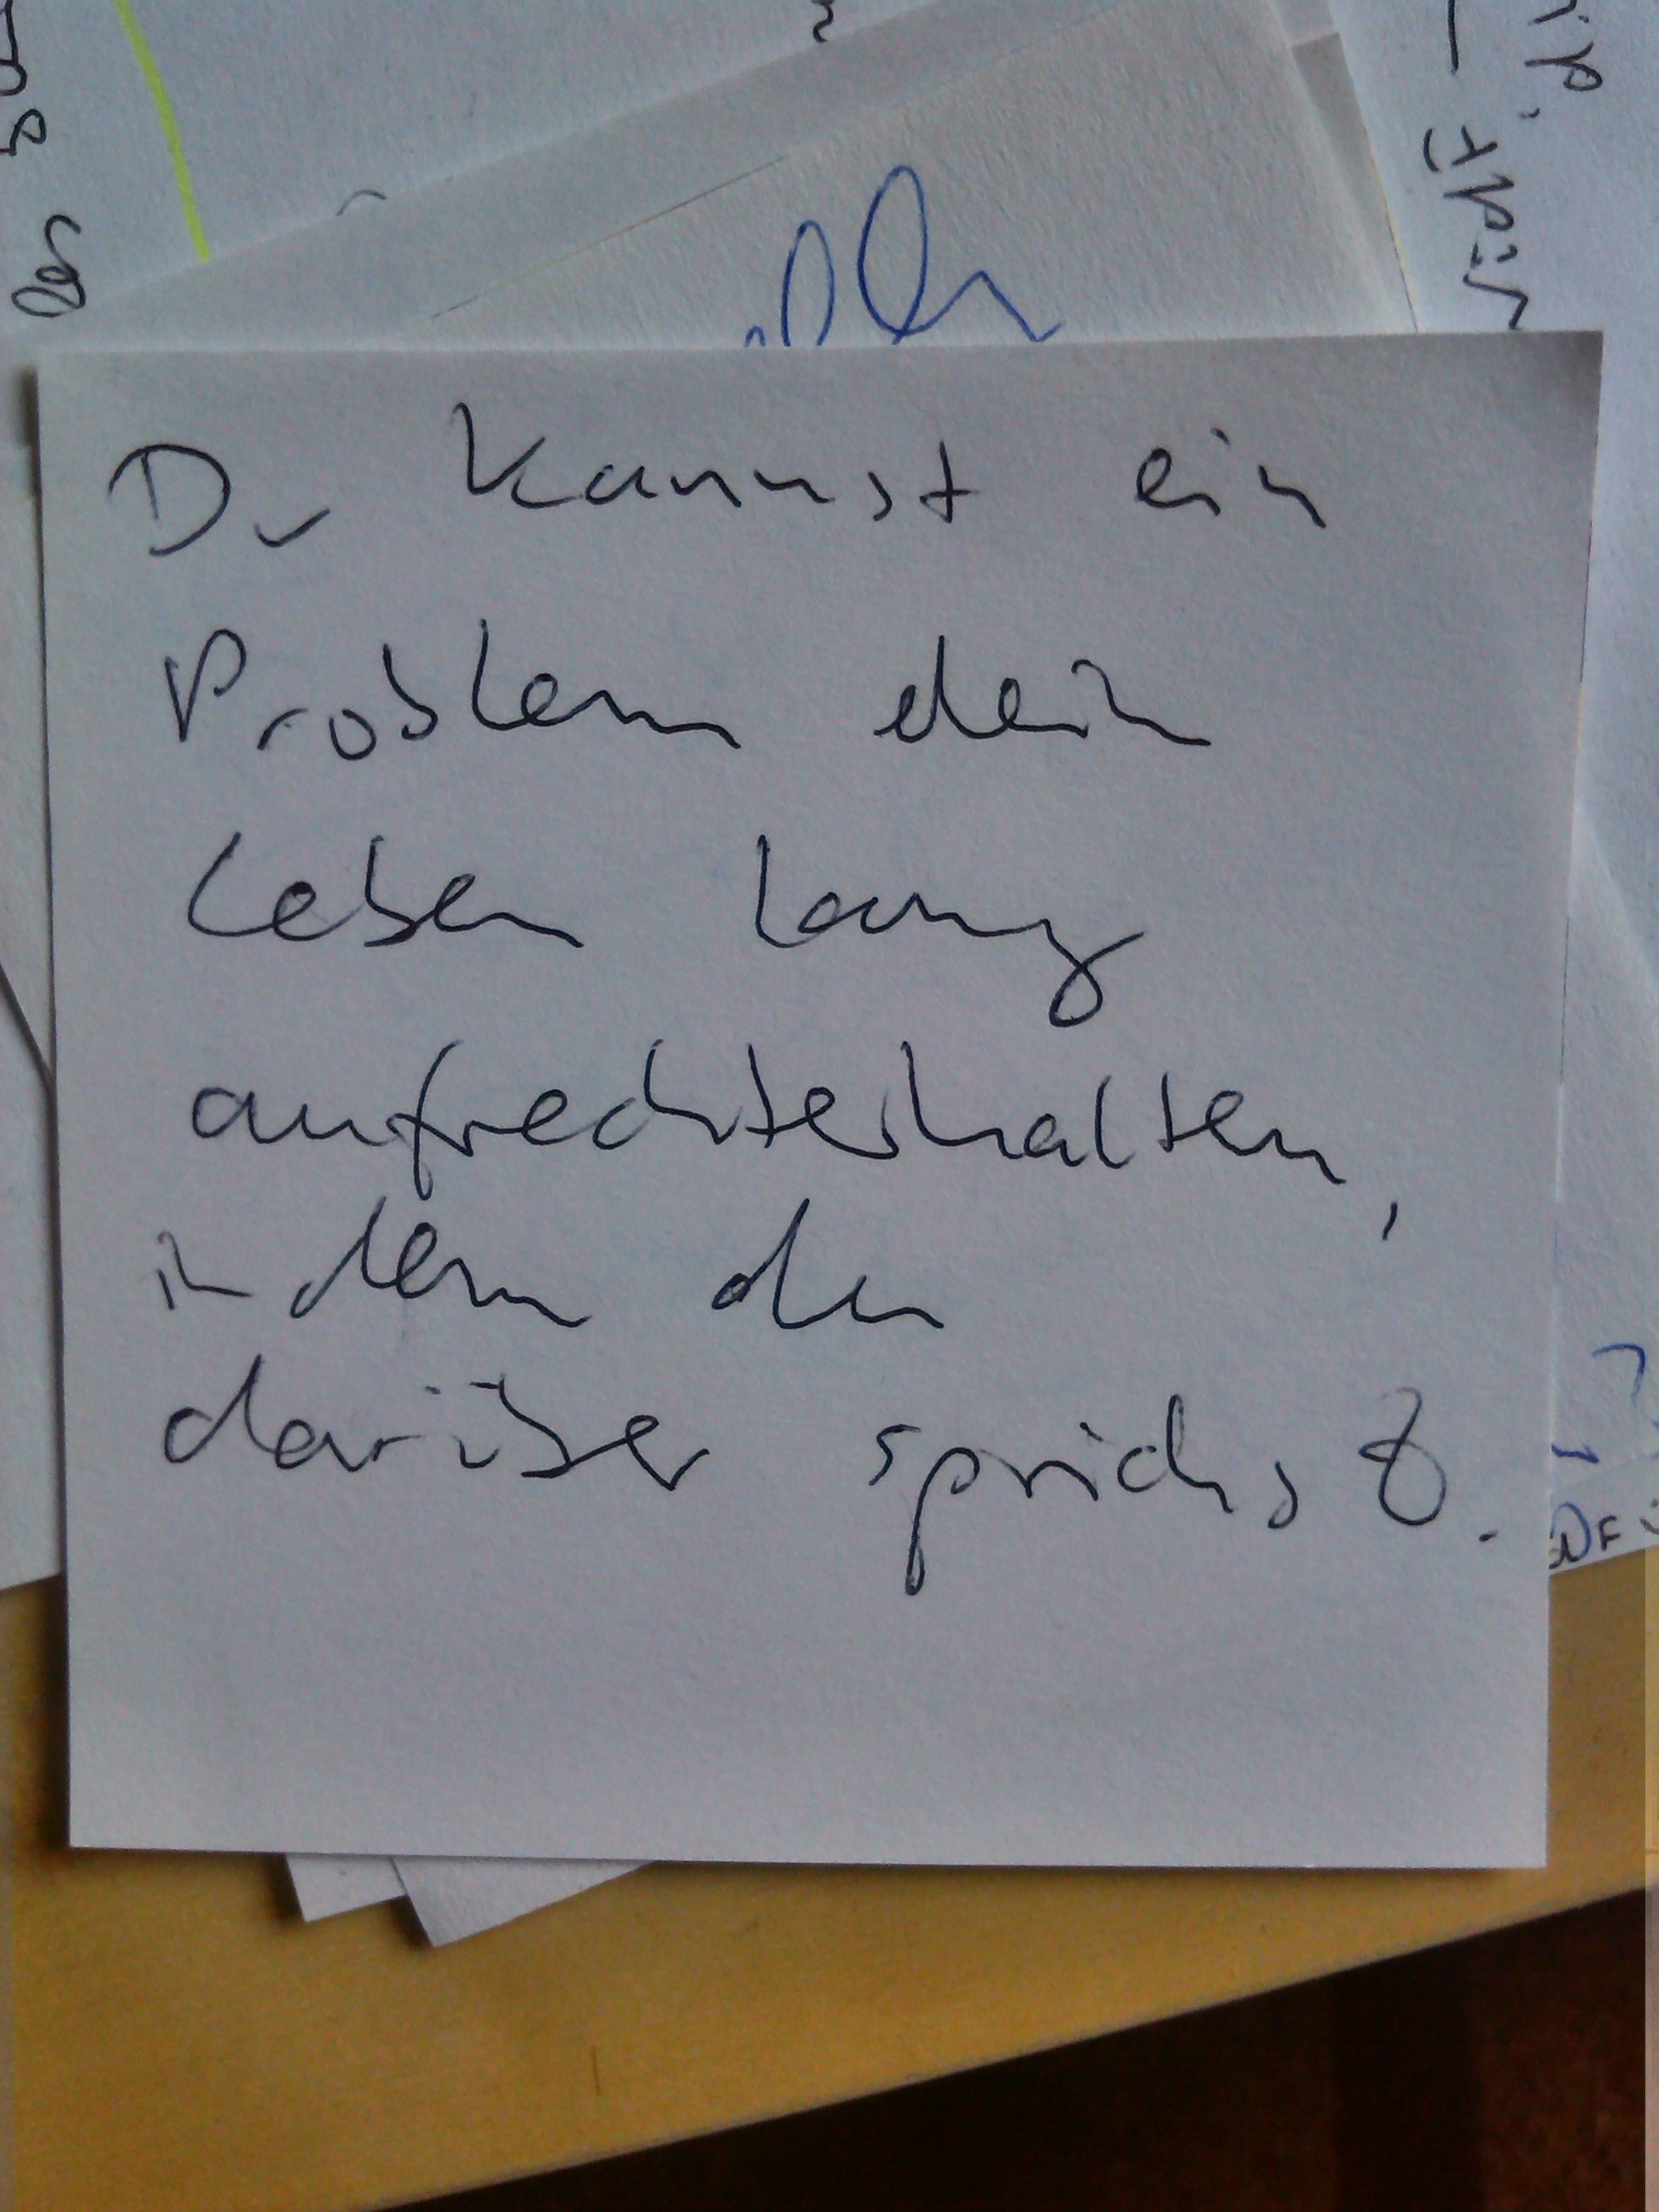 Du kannst ein
Problem dein
Leben lang
aufrechterhalten,
indem du
darüber sprichst.